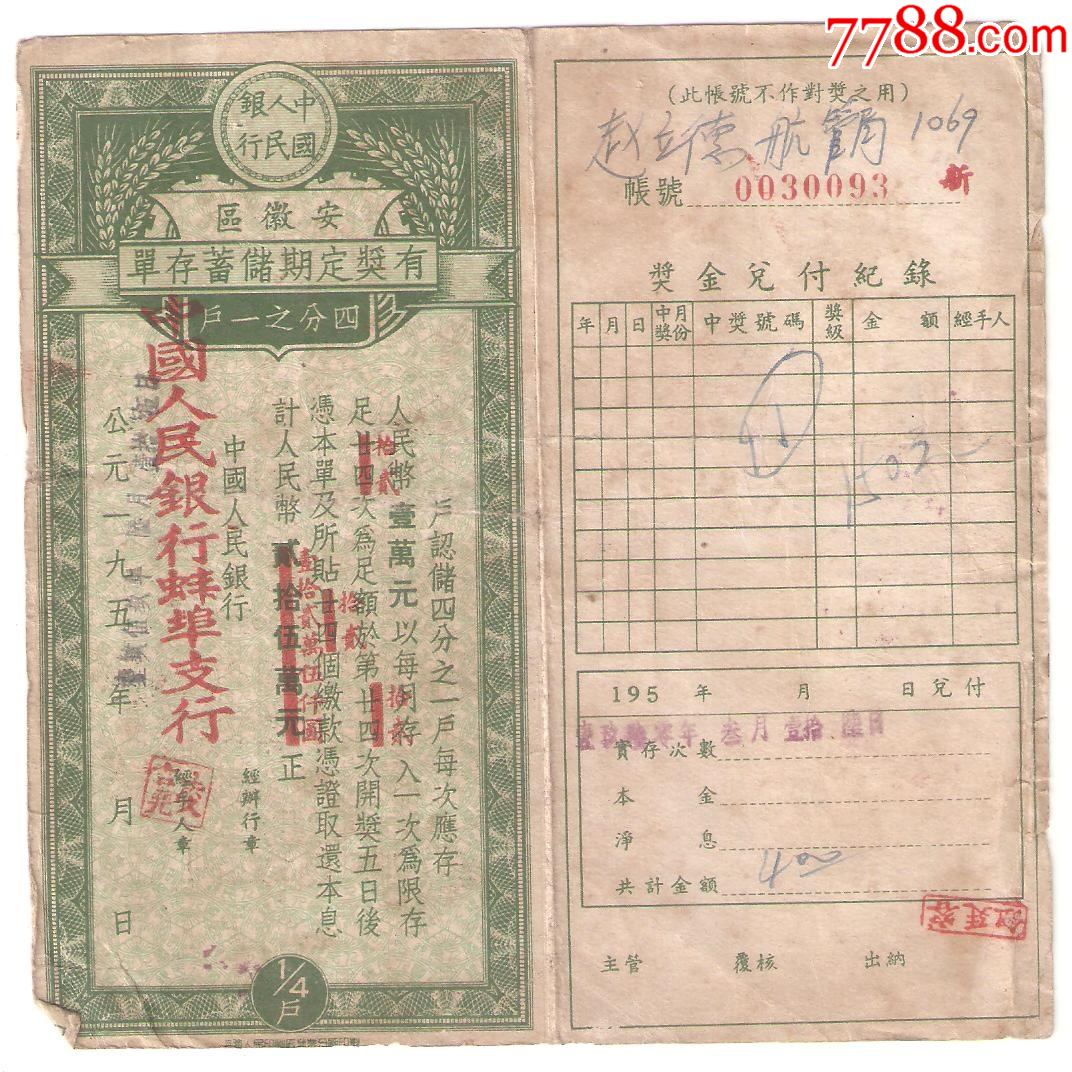 7788.com
中國
人民
銀行
安徽區
有獎定期儲蓄存單
四分之一戶
一戶認儲四分之一戶每次應存
人民幣壹萬元以每月存入一次為限存
足廿四次為足額於第廿四次開獎五日後
拾貳
拾貳
憑本單及所貼廿四個繳款憑證取還本息
拾貳
計人民幣貳拾伍萬元正
壹拾貳萬伍仟圓
中國人民銀行
經辦行章
經手人章
中國人民銀行蚌埠支行
公元一九五年月日
1/4
戶
(此帳號不作對獎之用)
赵立德 航 1069
帳號 0030093 新
獎金兌付紀錄
年 月 日 中獎月份 中獎號碼 獎級 金額 經手人
195 年 月 日兌付
年 叁月 壹拾 日
實存次數
本金
淨息
共計金額 400
主管 覆核 出納